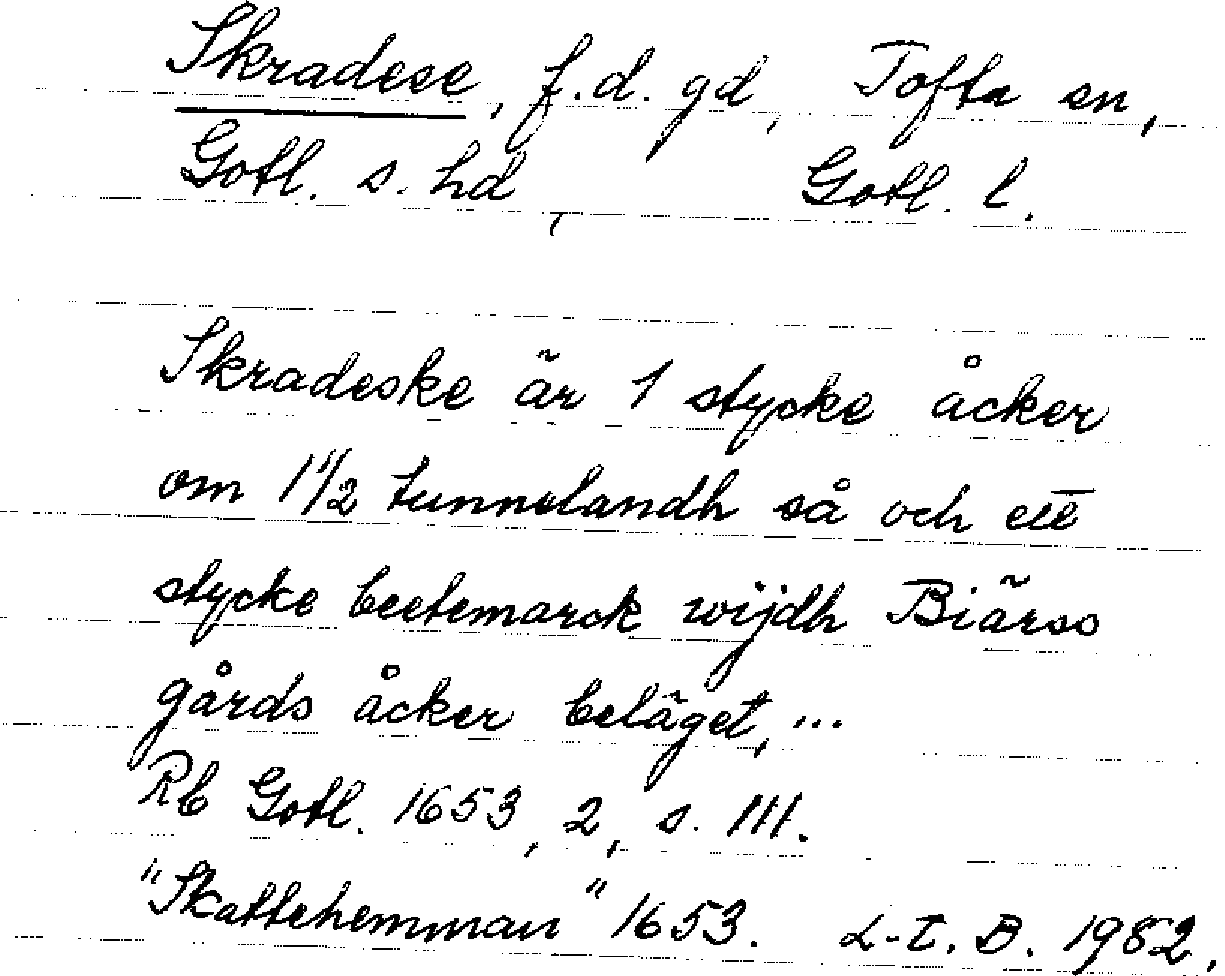 Skradese, f.d. gd, Tofta sn,
Gotl. s. hd, Gotl. l.
Skradeske är 1 stycke åcker
om 1 1/2 tunnelandh så och ett
stycke beetemarck wijdh Biärss
gårds åcker beläget, ...
Rb Gotl. 1653, 2, s. 111.
"Skattehemman" 1653. L-E. B. 1982.